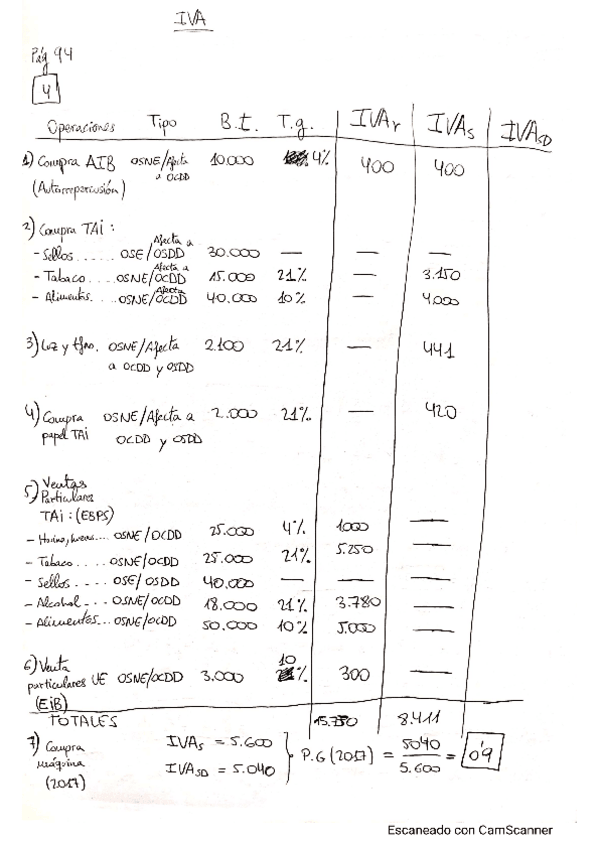 IVA
Pág 94
4
Operaciones Tipo B.I. T.g. IVAr IVAs IVASD
1) Compra AIB OSNE/Afecta 10.000 4% 400 400
(Autorrepercusión) a OCDD
2) Compra TAI:
- Sellos...... OSE/Afecta a OSDD 30.000 — — —
- Tabaco..... OSNE/Afecta a OCDD 15.000 21% — 3.150
- Alimentos.... OSNE/Afecta OCDD 40.000 10% — 4.000
3) Luz y tfno. OSNE/Afecta 2.100 21% — 441
a OCDD y OSDD
4) Compra OSNE/Afecta a 2.000 21% — 420
papel TAI OCDD y OSDD
5) Ventas
Particulares
TAI: (EBPS)
- Harina, ... OSNE/OCDD 25.000 4% 1000 —
- Tabaco..... OSNE/OCDD 25.000 21% 5.250 —
- Sellos..... OSE/OSDD 40.000 — — —
- Alcohol... OSNE/OCDD 18.000 21% 3.780 —
- Alimentos... OSNE/OCDD 50.000 10% 5.000 —
6) Venta 10
particulares UE OSNE/OCDD 3.000 % 300 —
(EIB)
TOTALES 15.730 8.411
7) Compra IVAs = 5.600
máquina IVASD = 5.040
(2017) P.G (2017) = 5040 / 5.600 = 0'9
Escaneado con CamScanner